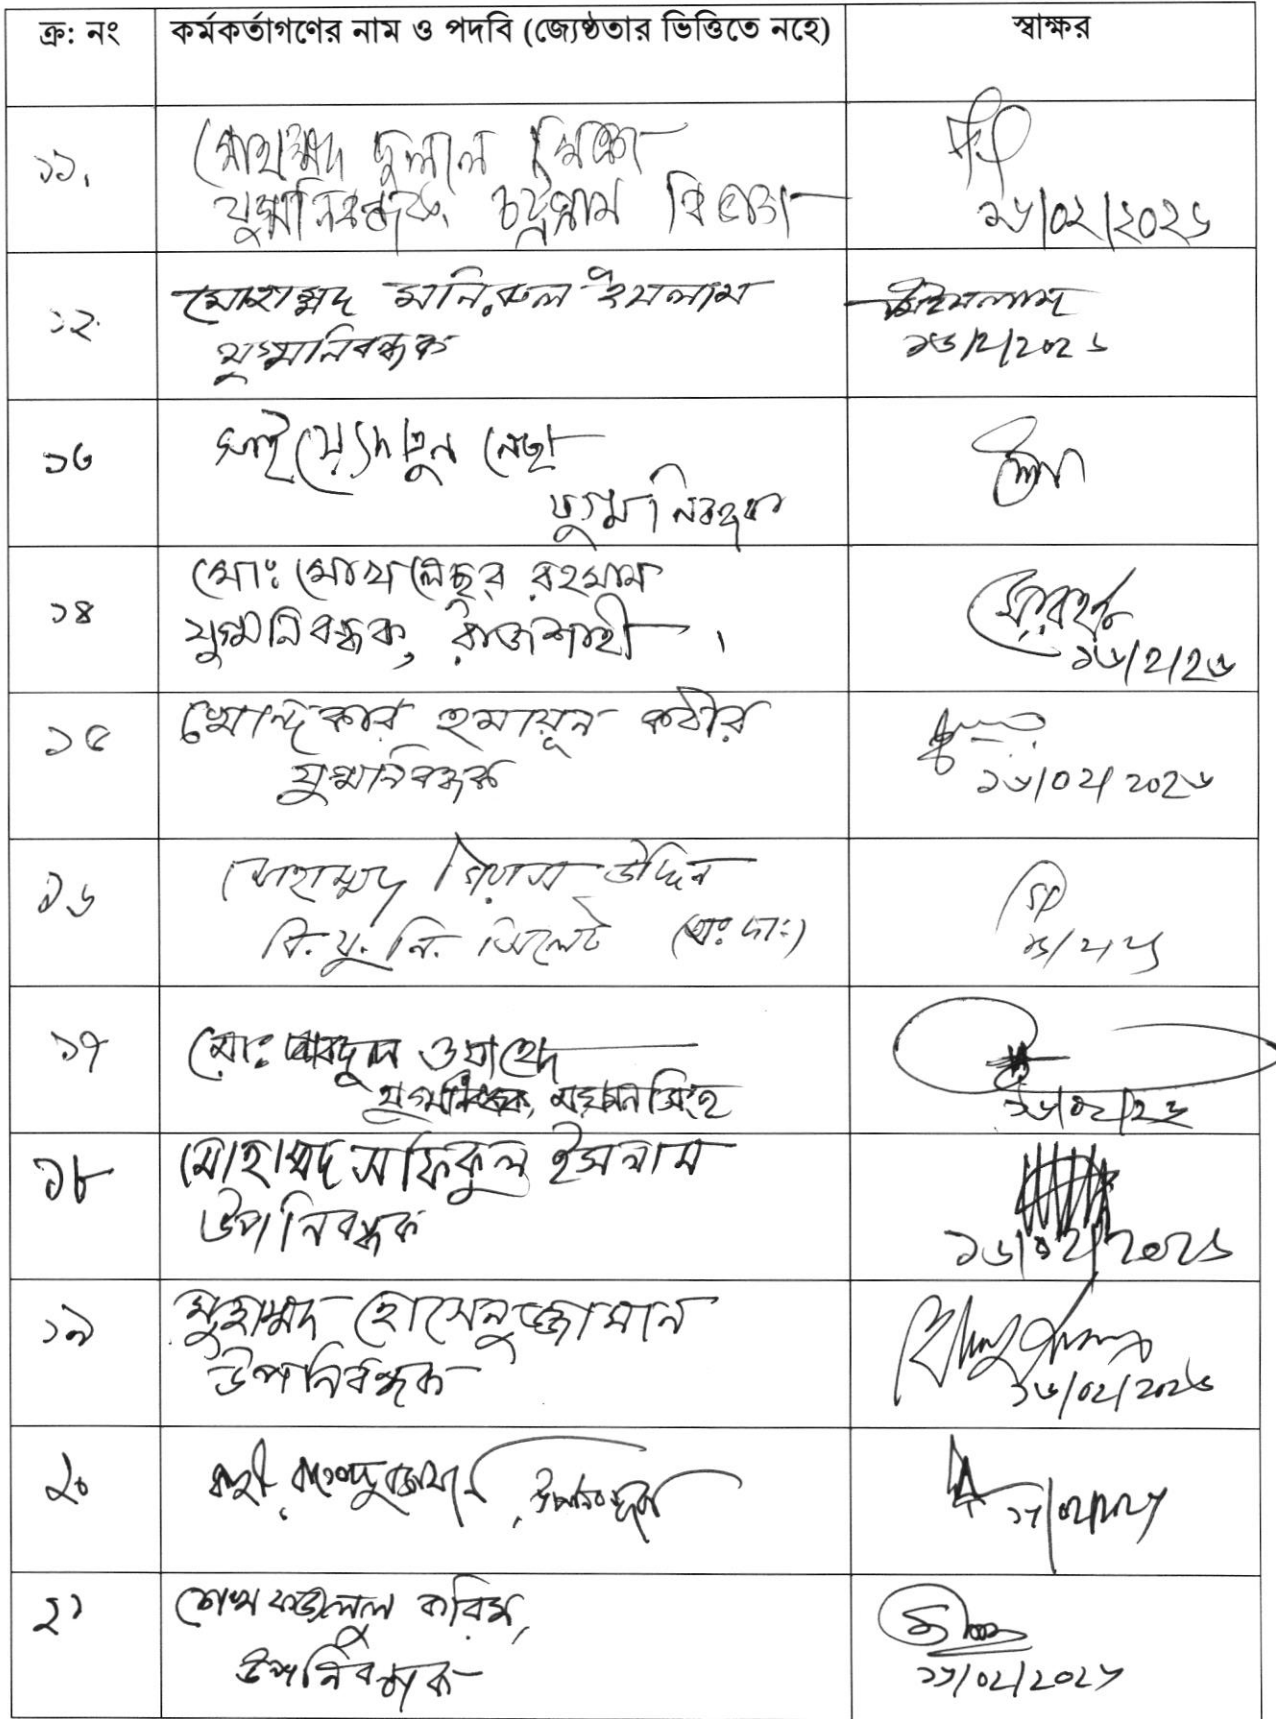 ক্র: নং কর্মকর্তাগণের নাম ও পদবি (জ্যেষ্ঠতার ভিত্তিতে নহে) স্বাক্ষর
১১. মোহাম্মদ দুলাল মিঞা
যুগ্মনিবন্ধক, চট্টগ্রাম বিভাগ ১৬/০২/২০২৬
১২. মোহাম্মদ মনিরুল ইসলাম
যুগ্মনিবন্ধক ১৬/২/২০২৬
১৩ সাইয়্যেদাতুন নেছা
যুগ্মনিবন্ধক
১৪ মোঃ মোখলেছুর রহমান
যুগ্মনিবন্ধক, রাজশাহী। ১৬/২/২৬
১৫ খোন্দকার হুমায়ূন কবীর
যুগ্মনিবন্ধক ১৬/০২/২০২৬
১৬ মোহাম্মদ গিয়াস উদ্দিন
বি.যু.নি. সিলেট (অঃ দাঃ) ১৬/২/২৬
১৭ মোঃ আবদুল ওয়াহেদ
যুগ্মনিবন্ধক, ময়মনসিংহ ১৬/০২/২৬
১৮ মোহাম্মদ সফিকুল ইসলাম
উপনিবন্ধক ১৬/০২/২০২৬
১৯ মুহাম্মদ হোসেনুজ্জামান
উপনিবন্ধক ১৬/০২/২০২৬
২০ উপনিবন্ধক
২১ শেখ ফজলুল করিম,
উপনিবন্ধক ১৬/০২/২০২৬